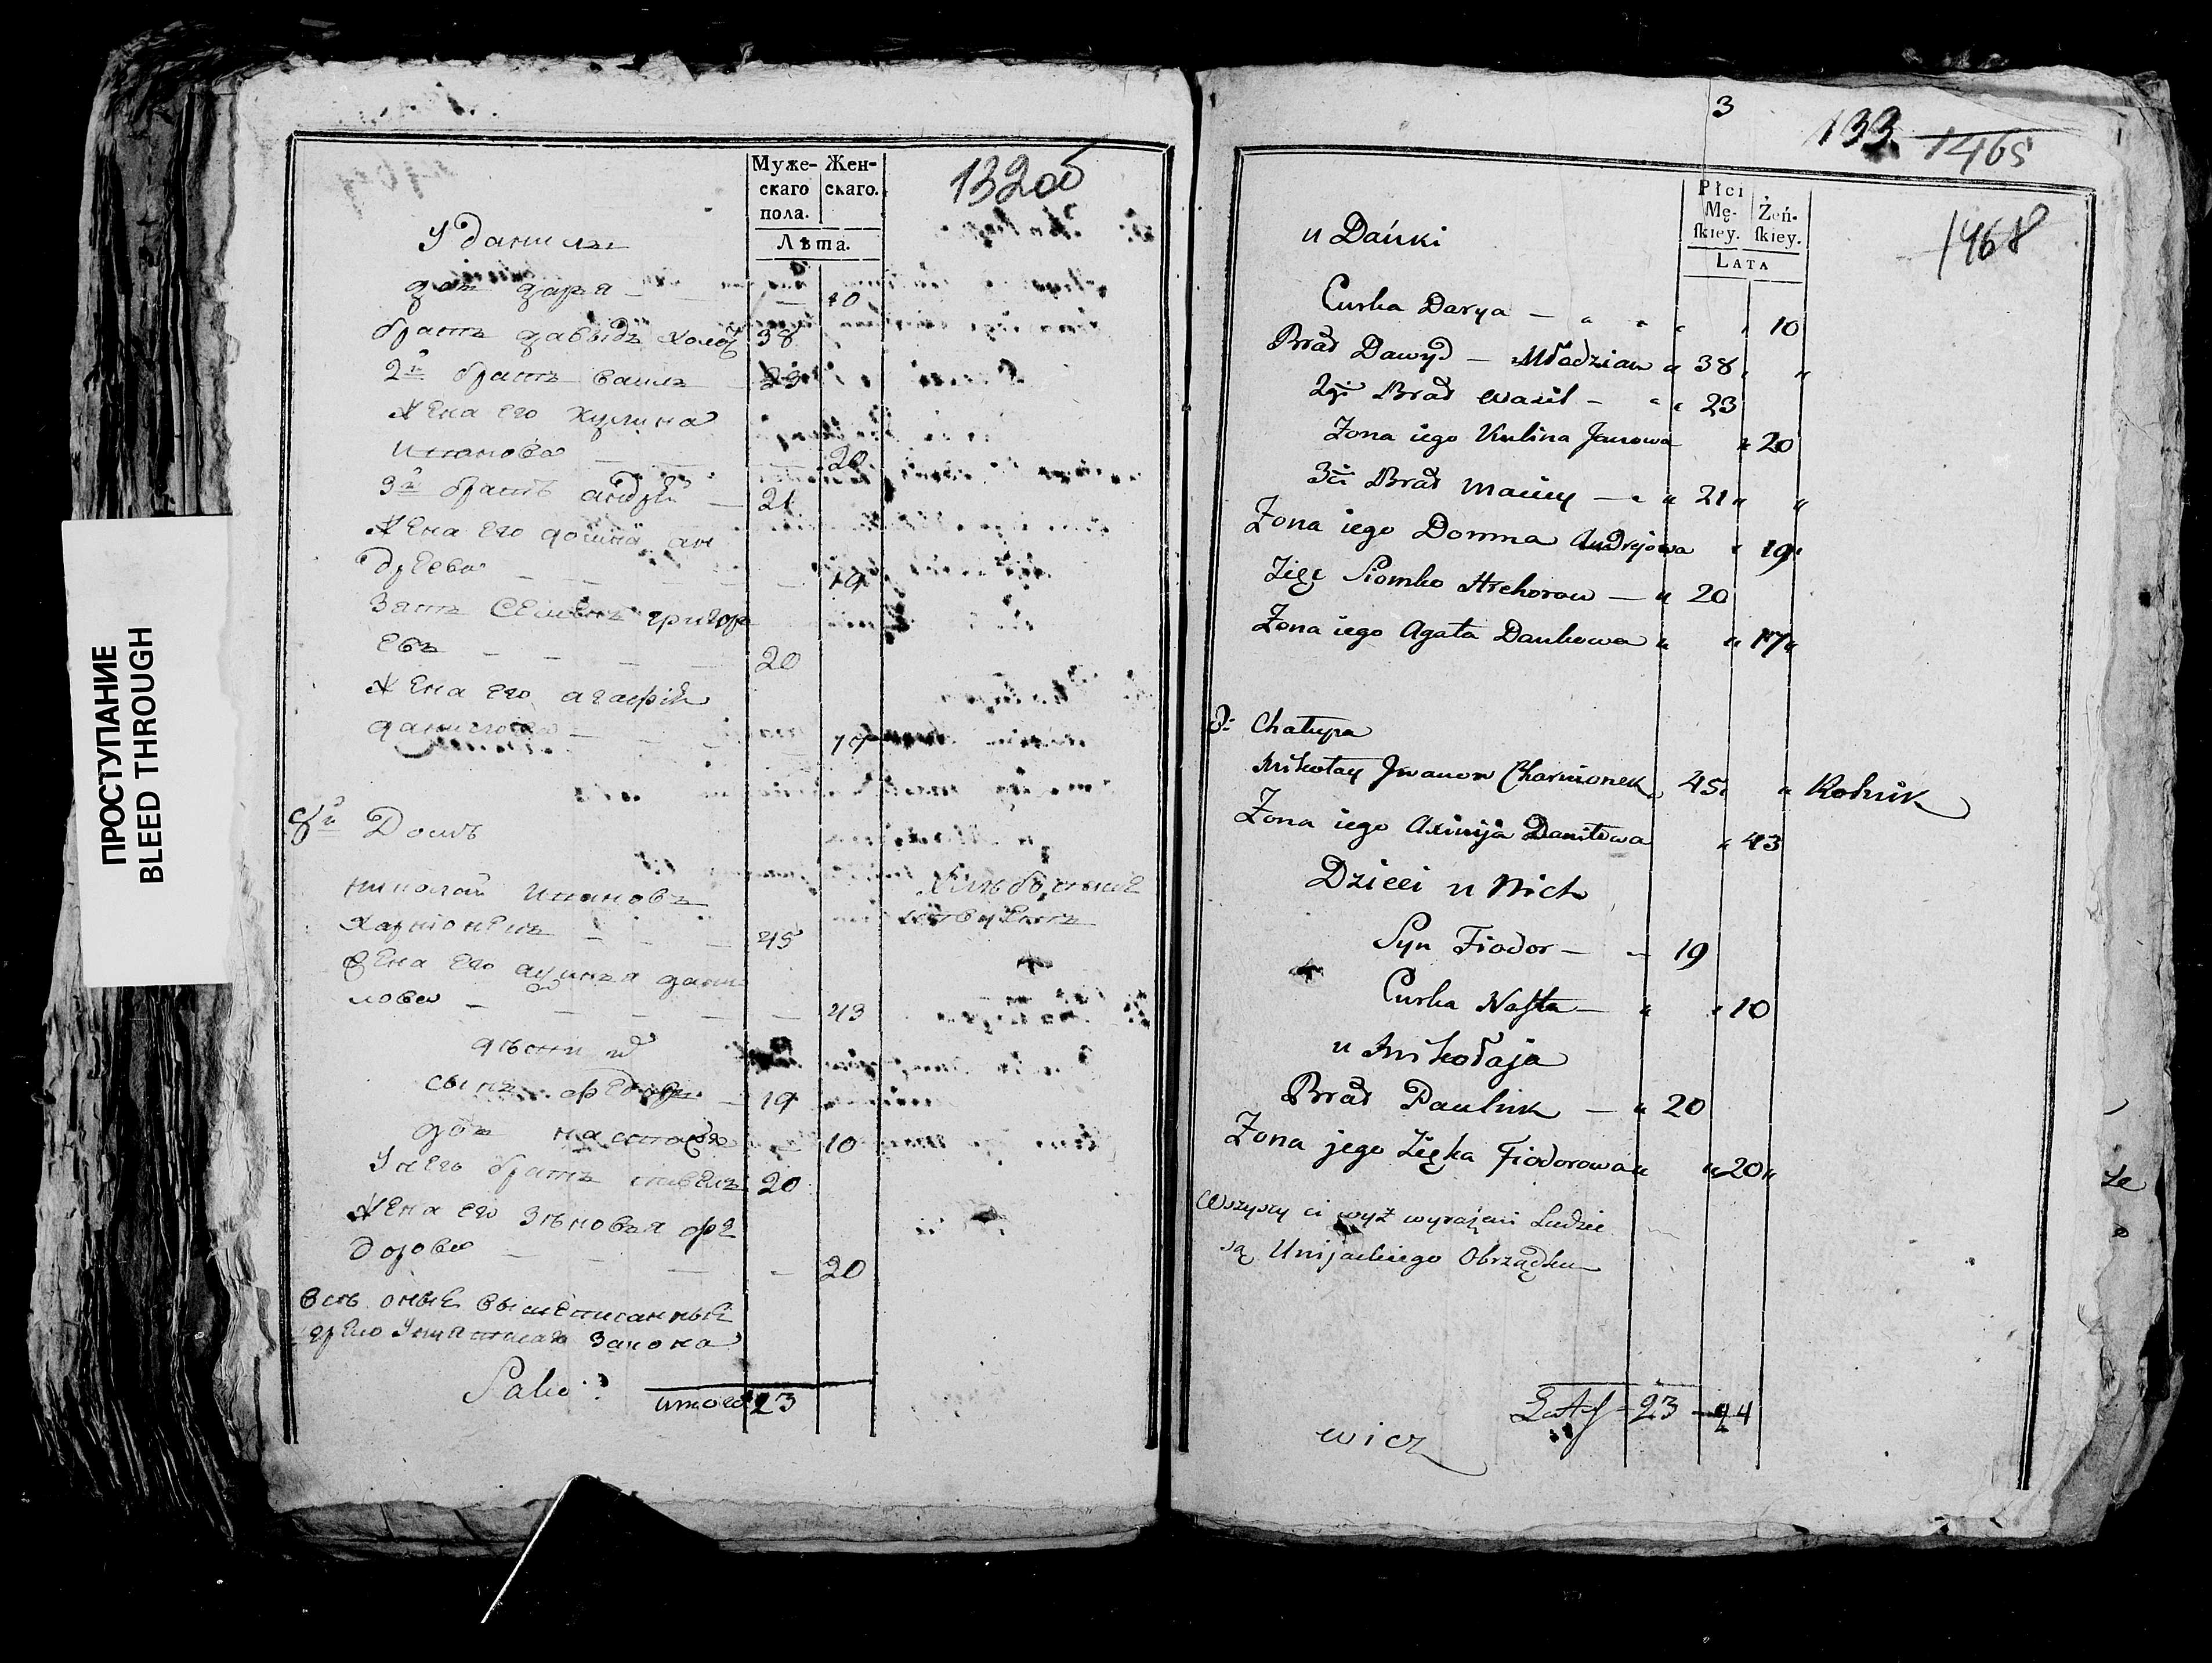 ПРОСТУПАНИЕ
BLEED THROUGH
132об
Муже-
скаго
пола.
Жен-
скаго.
Лѣта.
У данилы
доч дарья — — 10
братъ давыдъ холо 38
2й братъ василь — 23
жена его кулина
иванова — — 20
3й братъ андрей — 21
жена его домна ан
дреева — — 19
Зять Семенъ григорь
евъ — — 20
жена его агафия
данилова — — 17
8й Домъ
николай ивановъ
Харнионекъ — 45
хлебопашествуетъ
жена его аксинья дани
лова — — 43
дѣти
сынъ федоръ — 19
доч настасья — 10
у него братъ павелъ 20
жена его зѣновья фе
дорова — — 20
всѣ оные вышеписанные
греко униатскаго закона
Итого 23
3
133 1465
1468
Płci
Mę-
ſkiey.
Żeń-
ſkiey.
LATA
u Dańki
Curka Darya — 10
Brat Dawyd — Młodzian 38
2gi Brat Wasil — 23
Zona iego Kulina Janowa 20
3ci Brat Maciey — 21
Zona iego Domna Andrejowa 19
Zięć Siomko Hrehorow — 20
Zona iego Agata Dankowa 17
8: Chałupa
Mikołay Jwanow Charnionek 45 Rolnik
Zona iego Axinija Daniłowa 43
Dzieci u Nich
Syn Fiodor — 19
Curka Nasta — 10
u Mikołaja
Brat Pauluk — 20
Zona jego Zięka Fiodorowa 20
Wszyscy ci wyż wyrażeni Ludzie
są Unijackiego Obrządku
23 — 24
wicz